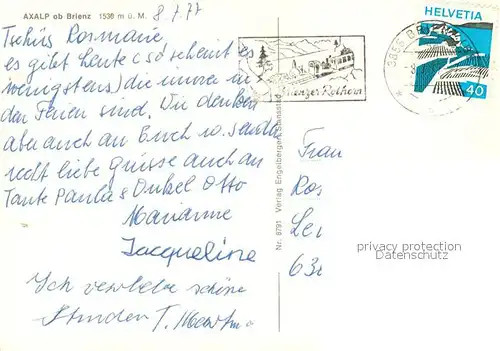 AXALP ob Brienz 1530 m ü. M.
8.7.77
Tschüss Rosmarie
es gibt heute (so scheint es
wenigstens) die immer in
den Ferien sind. Wir denken
aber auch an Euch u. senden
recht liebe Grüsse auch an
Tante Paula & Onkel Otto
Marianne
Jacqueline
Ich verlebe schöne
Stunden T.
Brienzer Rothorn
3855
HELVETIA
40
Nr. 9791 Verlag Engelberger, Stansstad
Frau
Ros
Le
63
privacy protection
Datenschutz